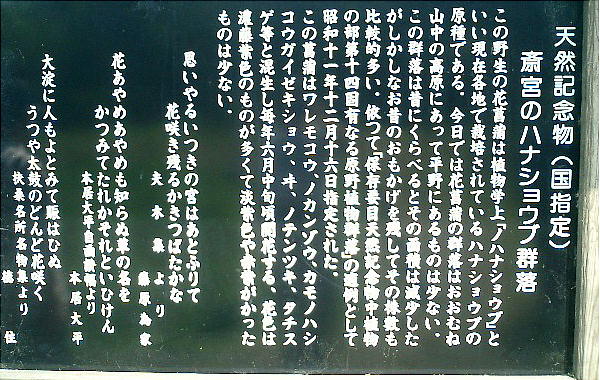 天然記念物（国指定）
斎宮のハナショウブ群落
この野生の花菖蒲は植物学上「ノハナショウブ」と
いい現在各地で栽培されているハナショウブの
原種である。今日では花菖蒲の群落はおおむね
山中の高原にあって平野にあるものは少ない。
この群落は昔にくらべるとその面積は減少した
がしかしなお昔のおもかげを残してその株数も
比較的多い、依つて「保存要目天然記念物中植物
の部第十四固有なる原野植物群落」の適例として
昭和十一年十二月十六日指定された。
この菖蒲はワレモコウ、ノカンゾウ、カモノハシ
コウガイゼキショウ、ヰ、ノテンツキ、タチス
ゲ等と混生し毎年六月中旬頃開花する、花色は
濃藤紫色のものが多くて淡紫色や赤紫がかった
ものは少ない。
思いやるいつきの宮はあとふりて
花咲き残るかきつばたかな
夫木集より
藤原為家
花あやめあやめも知らぬ草の名を
かつみてたれかそれといひけん
本居大平自画讃幅より
本居大平
大淀に人もよとみて賑はひぬ
うつや太鼓のどんど花咲く
扶桑名所名物集より